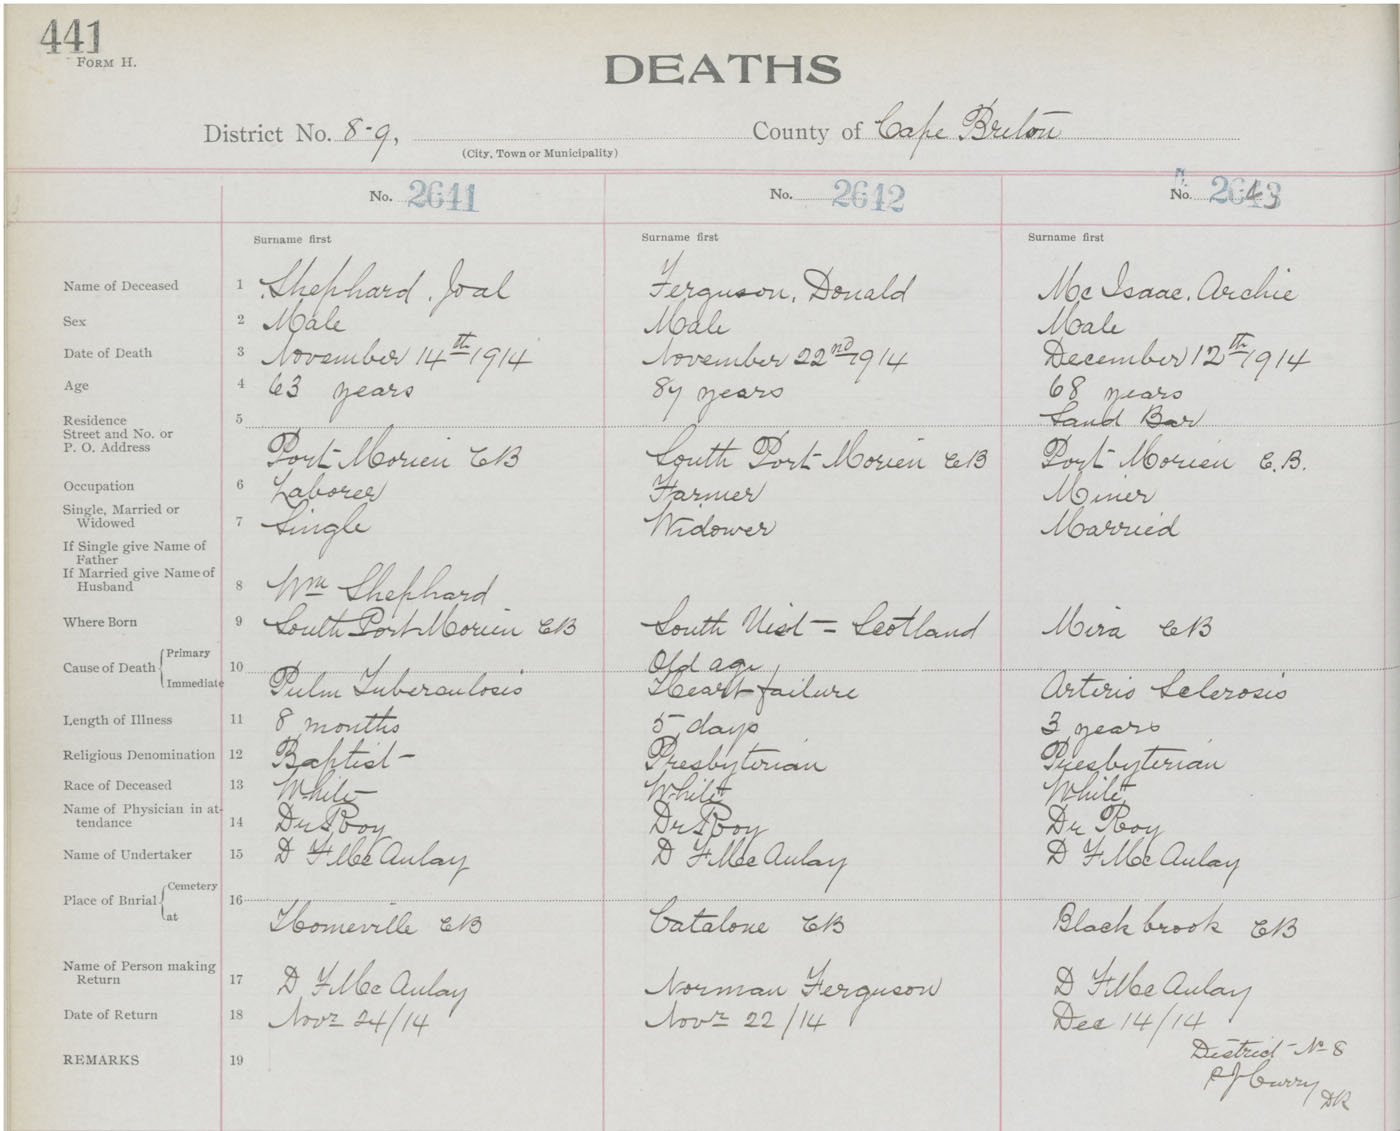 441
FORM H.
DEATHS
District No. 8-9, County of Cape Breton
(City, Town or Municipality)
No. 2641 No. 2642 No. 2643
Surname first Surname first Surname first
Name of Deceased 1 Shephard, Joal Ferguson, Donald Mc Isaac, Archie
Sex 2 Male Male Male
Date of Death 3 November 14th 1914 November 22nd 1914 December 12th 1914
Age 4 63 years 87 years 68 years
Residence 5 Sand Bar
Street and No. or
P. O. Address Port Morien CB South Port Morien CB Port Morien C.B.
Occupation 6 Laborer Farmer Miner
Single, Married or
Widowed 7 Single Widower Married
If Single give Name of
Father
If Married give Name of
Husband 8 Wm Shephard
Where Born 9 South Port Morien CB South Uist = Scotland Mira CB
Cause of Death Primary 10 Old age
Immediate Pulm Tuberculosis Heart failure Arterio Sclerosis
Length of Illness 11 8 months 5 days 3 years
Religious Denomination 12 Baptist Presbyterian Presbyterian
Race of Deceased 13 White White White
Name of Physician in at-
tendance 14 Dr Roy Dr Roy Dr Roy
Name of Undertaker 15 D F McAulay D F McAulay D F McAulay
Place of Burial Cemetery 16
at Homeville CB Catalone CB Black brook CB
Name of Person making
Return 17 D F McAulay Norman Ferguson D F McAulay
Date of Return 18 Novr 24/14 Novr 22/14 Dec 14/14
REMARKS 19 District No 8
Curry
DR